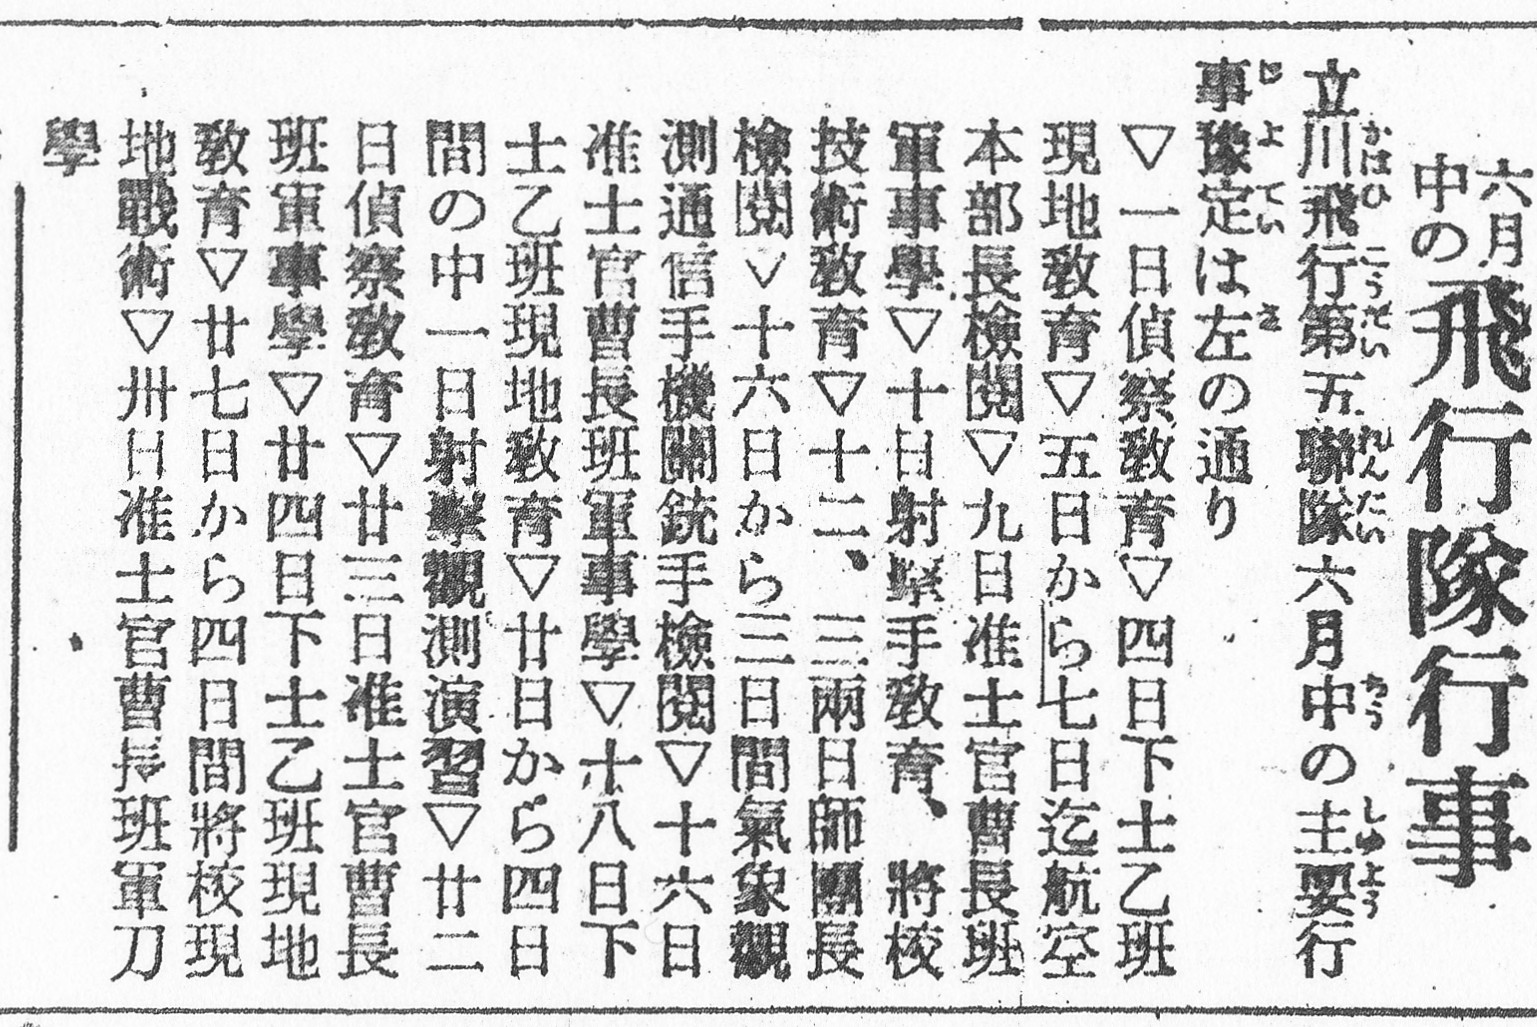 六月
中の
飛行隊行事
立川飛行第五聯隊六月中の主要行
事豫定は左の通り
▽一日偵察教育▽四日下士乙班
現地教育▽五日から七日迄航空
本部長檢閲▽九日准士官曹長班
軍事學▽十日射撃手教育、將校
技術教育▽十二、三兩日師團長
檢閲▽十六日から三日間氣象觀
測通信手機關銃手檢閲▽十六日
准士官曹長班軍事學▽十八日下
士乙班現地教育▽廿日から四日
間の中一日射撃觀測演習▽廿二
日偵察教育▽廿三日准士官曹長
班軍事學▽廿四日下士乙班現地
教育▽廿七日から四日間將校現
地戰術▽卅日准士官曹長班軍刀
學